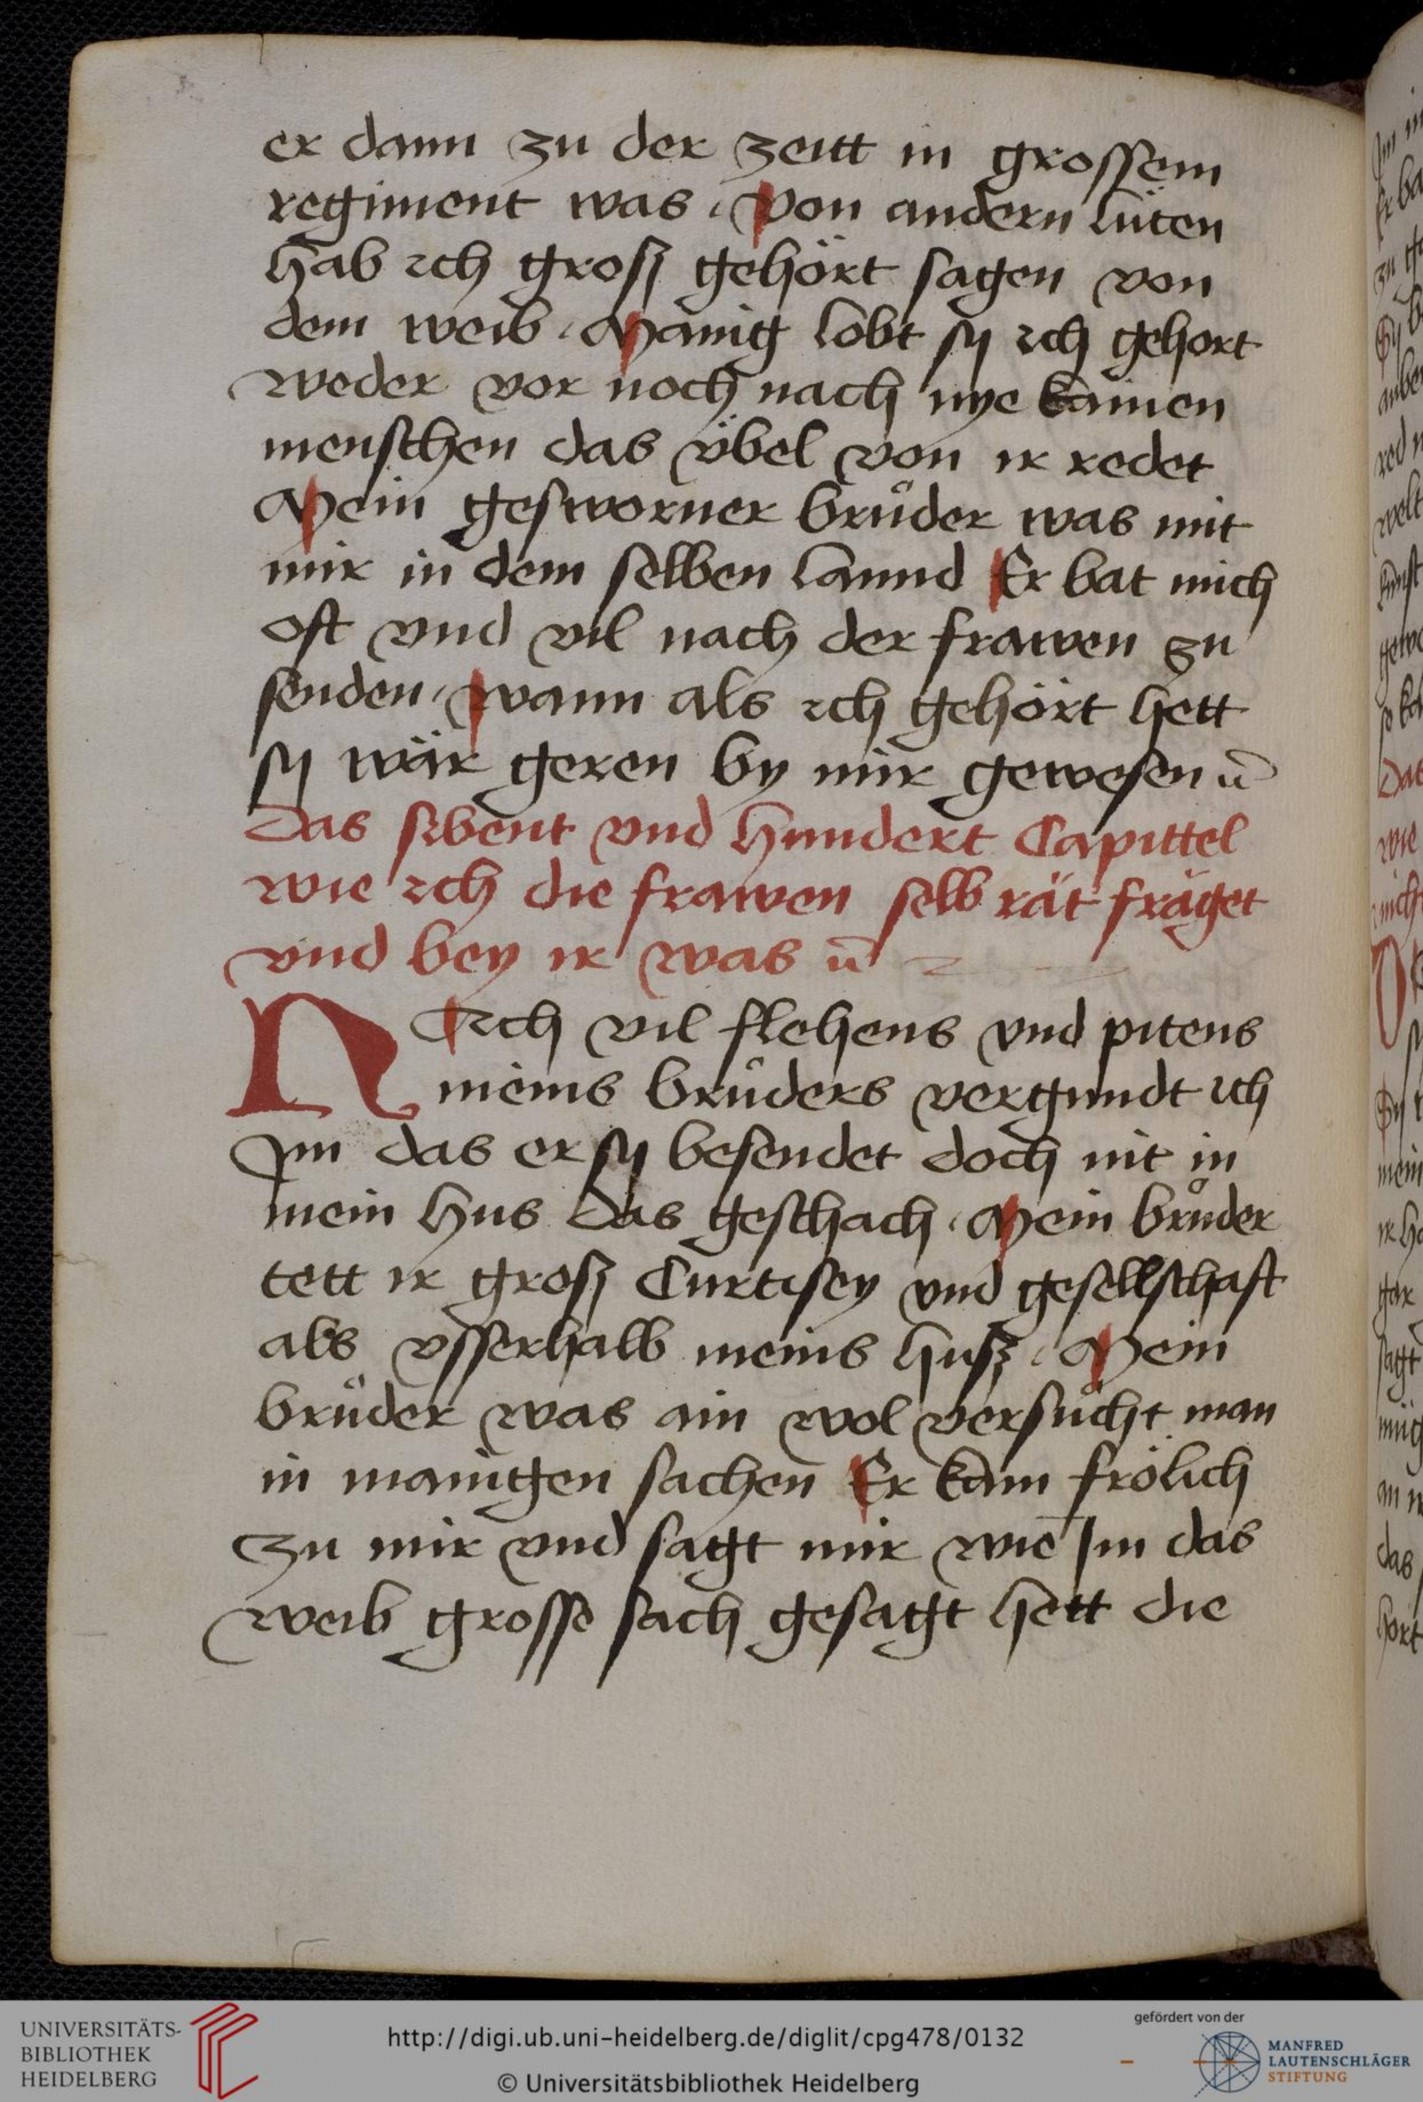 er dann zu der zeitt in grossem
regiment was . Von andern lüten
hab ich grosz gehört sagen von
dem weib . Mänig lobt sy ich gehort
weder vor noch nach nye kainen
menschen das v̈bel von ir redet
Mein gesworner brůder was mit
mir in dem selben lannd Er bat mich
oft vnd vil nach der frawen zu
senden . wann als ich gehört hett
sy wär geren by mir gewesen
Das sibent vnd hundert Capittel
wie ich die frawen selb rät fräget
vnd bey ir was
NAch vil flehens vnd pitens
meins brůders vergundt ich
Im das er sy besendet doch nit in
mein hus das geschach . Mein brůder
tett ir grosz Curtisey vnd gesellschaft
als vsserhalb meins husz . Mein
brůder was ain wol versůcht man
in manigen sachen Er kam frölich
zu mir vnd sagt mir wie Im das
weib grosse sach gesagt hett die
UNIVERSITÄTS-
BIBLIOTHEK
HEIDELBERG
http://digi.ub.uni-heidelberg.de/diglit/cpg478/0132
© Universitätsbibliothek Heidelberg
gefördert von der
MANFRED
LAUTENSCHLÄGER
STIFTUNG